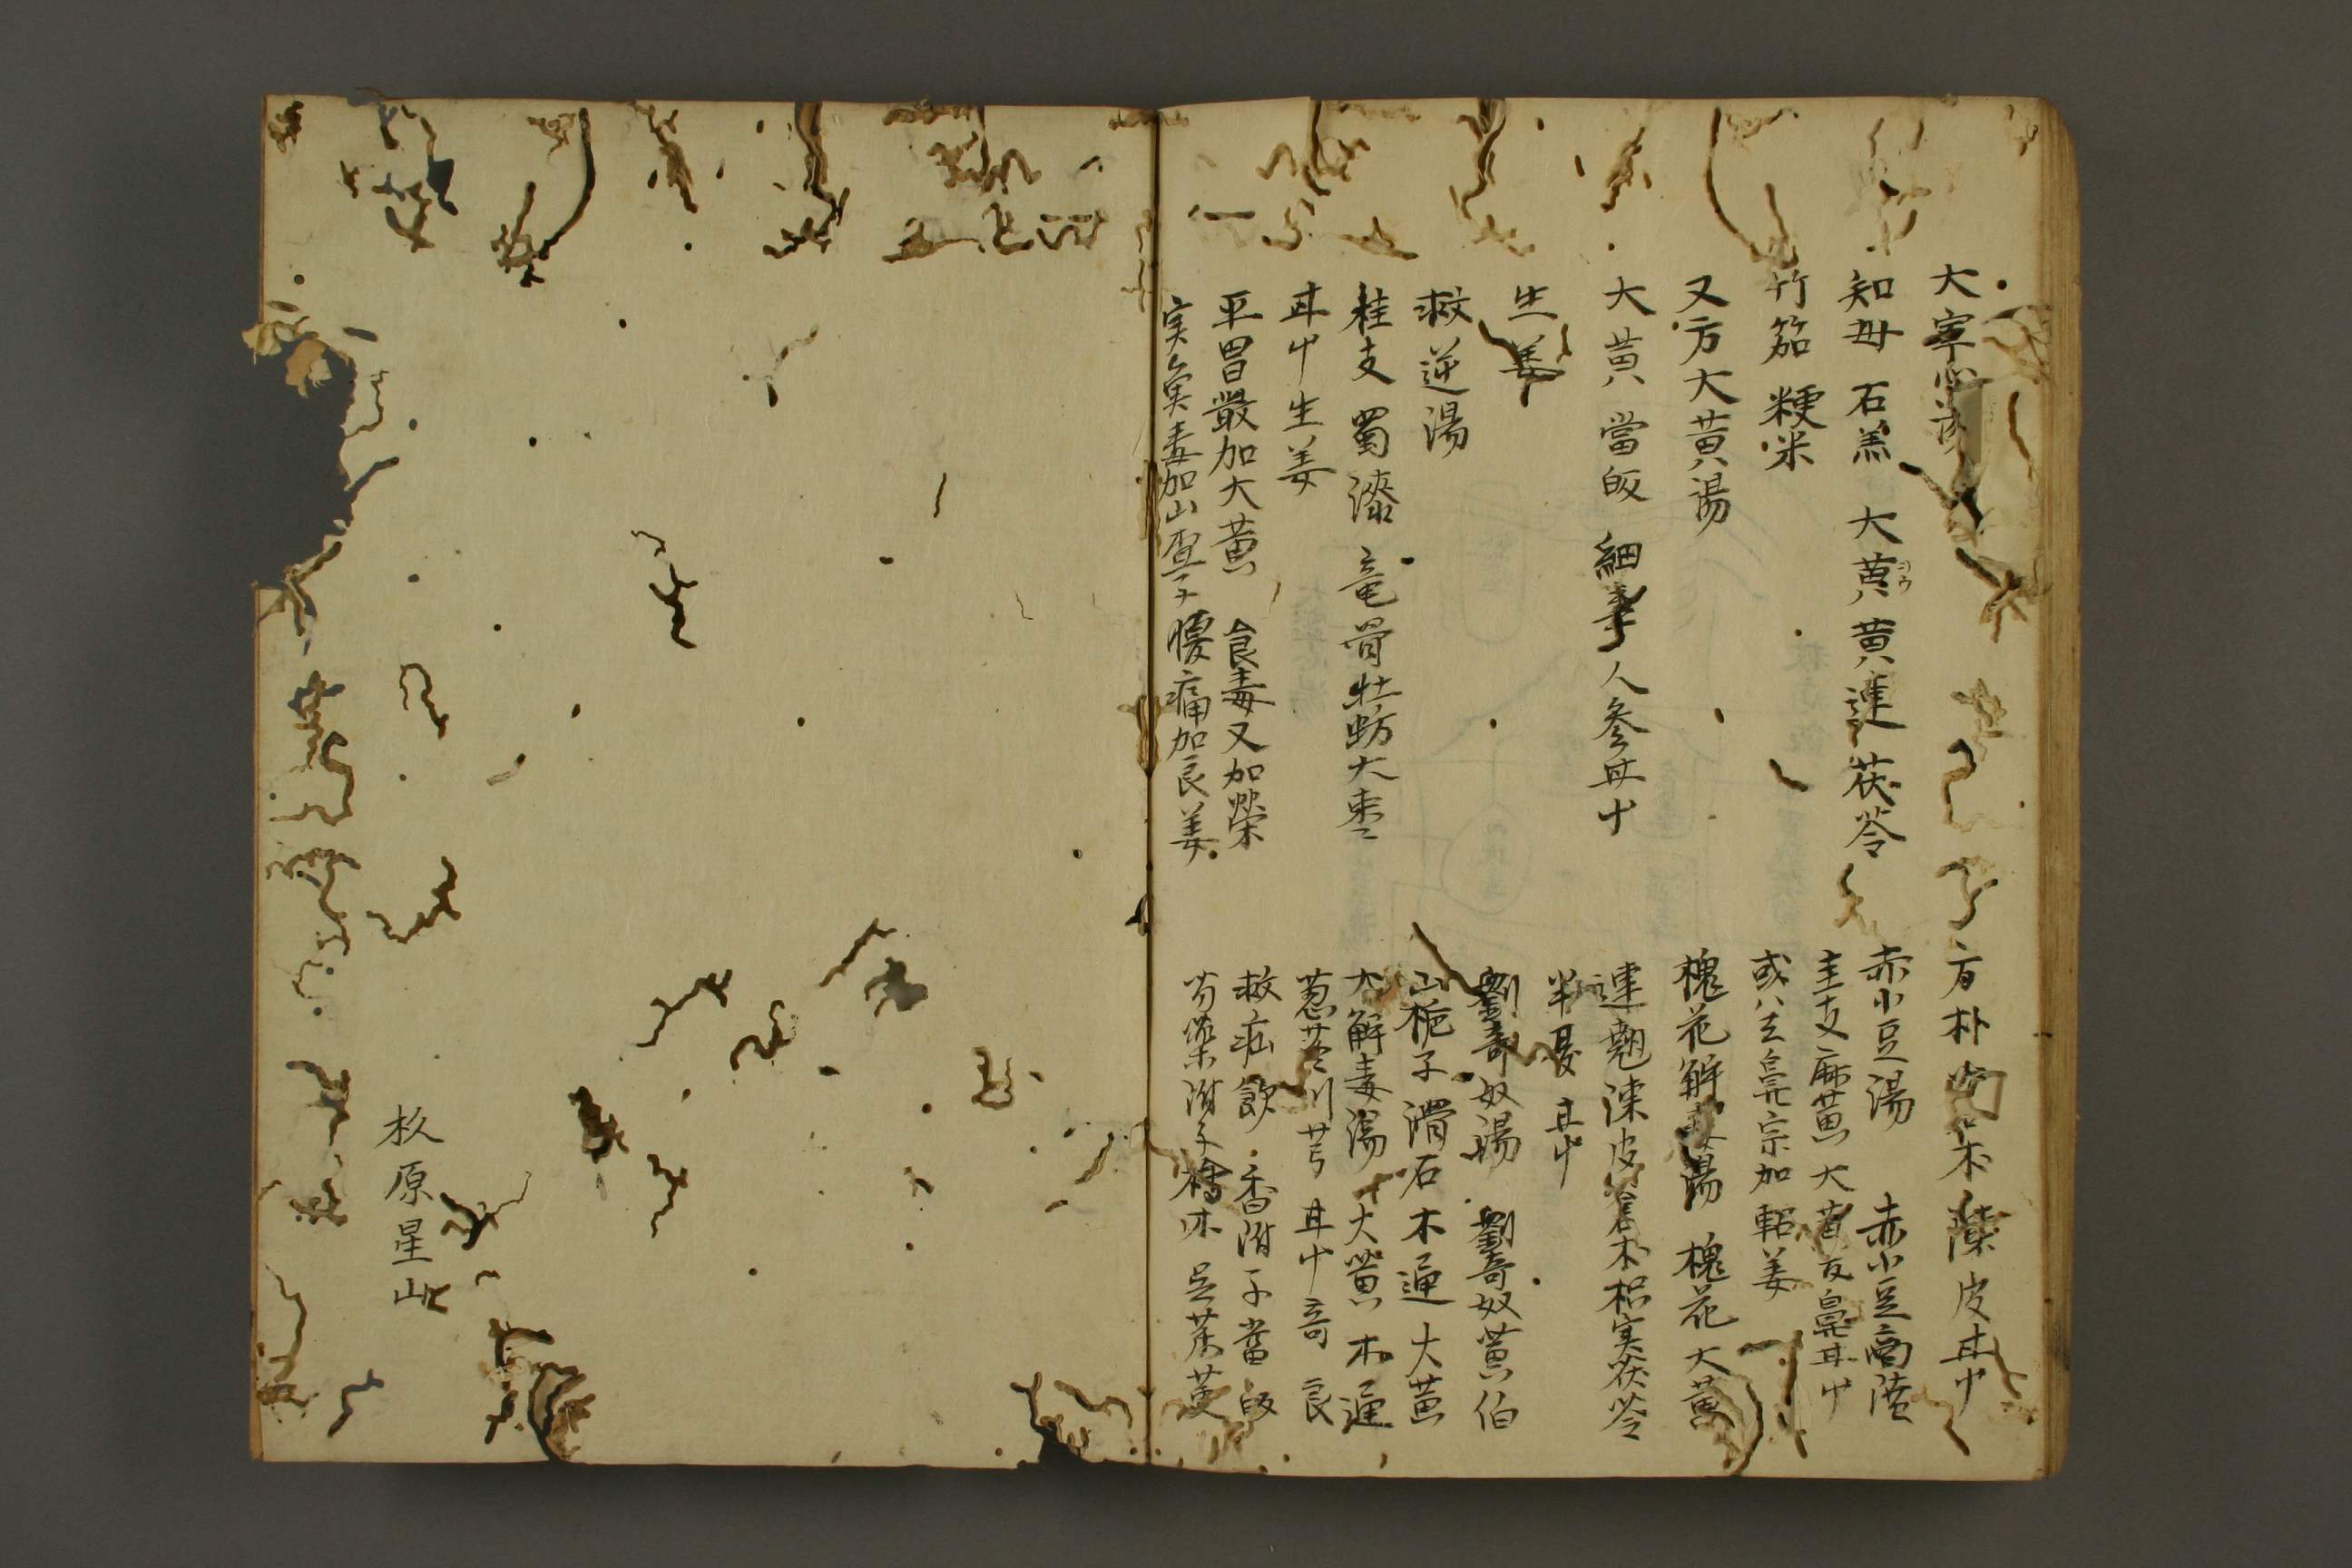 大寧心湯
知母 石羔 大黄 黄連 茯苓
竹筎 粳米
又方大黄湯
大黄 當皈 細辛 人参 甘中
生姜
救逆湯
桂支 蜀漆 竜骨 牡蛎 大枣
甘中 生姜
平胃散加大黄 食毒又加
実魚毒加山査子 腹痛加良姜
方 朴 朮 陳皮 甘中
赤小豆湯 赤小豆 商陸
圭支 麻黄 大黄 甘中
或ハ去 宗加乾姜
槐花解毒湯 槐花 大黄
連翹 陳皮 蒼朮 枳実 茯苓
半夏 甘中
劉寄奴湯 劉寄奴 黄伯
山梔子 滑石 木通 大黄
大解毒湯 大黄 木通
川芎 甘中 奇 良
救疝飲 香附子 當皈
芍薬 附子 呉茱萸
杦原星